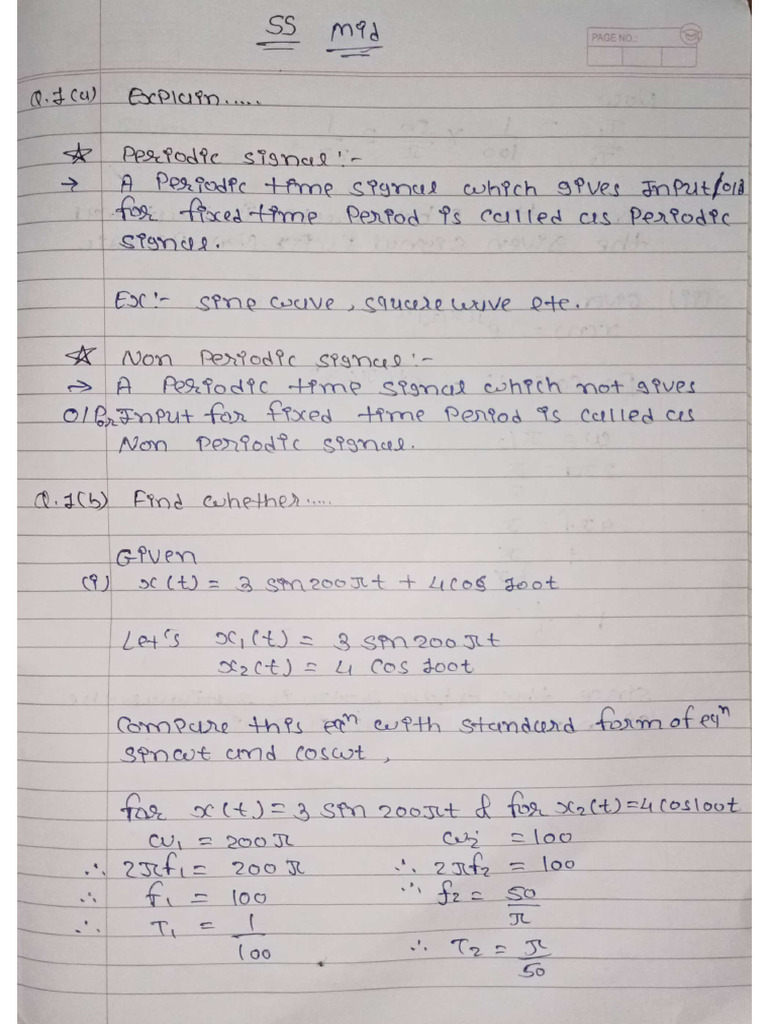 SS Mid
PAGE NO.:
Q.1(a) Explain.....
☆ Periodic signal :-
→ A Periodic time signal which gives Input/o/p
for fixed time Period is called as Periodic
signal.
Ex :- sine wave, square wave etc.
☆ Non Periodic signal :-
→ A Periodic time signal which not gives
O/P or Input for fixed time Period is called as
Non Periodic signal.
Q.1(b) Find whether.....
Given
(i) x(t) = 3 sin200πt + 4cos 100t
Let's x₁(t) = 3 sin200πt
x₂(t) = 4 cos 100t
Compare this eqⁿ with standard form of eqⁿ
sinωt and cosωt,
for x(t) = 3 sin 200πt & for x₂(t) = 4cos100t
ω₁ = 200π ω₂ = 100
∴ 2πf₁ = 200π ∴ 2πf₂ = 100
∴ f₁ = 100 ∴ f₂ = 50/π
∴ T₁ = 1/100 ∴ T₂ = π/50